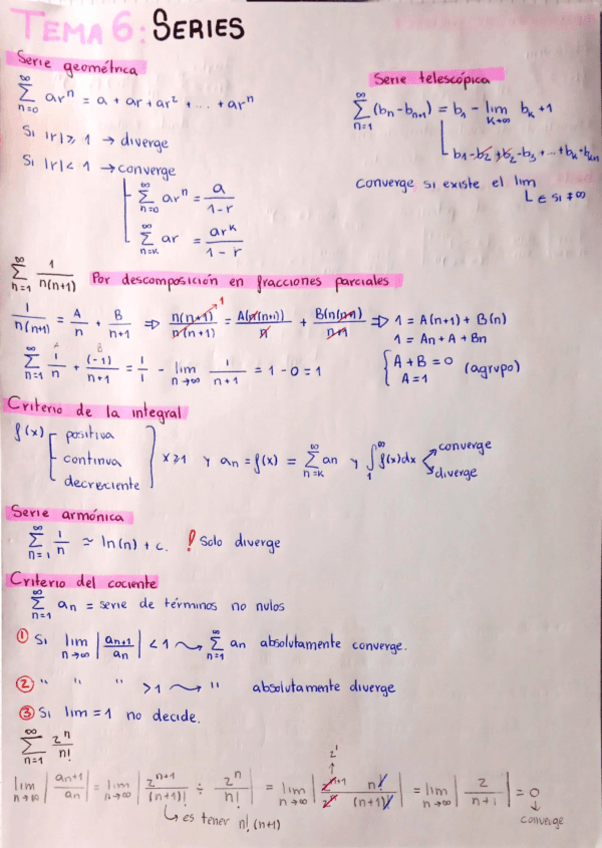 TEMA 6: SERIES
Serie geométrica
∑_{n=0}^{∞} ar^n = a + ar + ar² + ... + ar^n
Si |r| ≥ 1 → diverge
Si |r| < 1 → converge
∑_{n=0}^{∞} ar^n = a/(1-r)
∑_{n=k}^{∞} ar = ar^k/(1-r)
Serie telescópica
∑_{n=1}^{∞} (b_n - b_{n+1}) = b_1 - lim_{k→∞} b_k + 1
b_1 - b_2 + b_2 - b_3 + ... + b_k - b_{k+1}
Converge si existe el lim
L ∈ si ≠ ∞
∑_{n=1}^{∞} 1/(n(n+1)) Por descomposición en fracciones parciales
1/(n(n+1)) = A/n + B/(n+1) ⇒ n(n+1)/(n(n+1)) → 1 = A(n(n+1))/n + B(n(n+1))/(n+1) ⇒ 1 = A(n+1) + B(n)
1 = An + A + Bn
A B
∑_{n=1}^{∞} 1/n + (-1)/(n+1) = 1/1 - lim_{n→∞} 1/(n+1) = 1 - 0 = 1
{ A + B = 0
A = 1 (agrupo)
Criterio de la integral
f(x) [ positiva
continua
decreciente } x ≥ 1 y an = f(x) = ∑_{n=k}^{∞} an y ∫_1^∞ f(x)dx
converge
diverge
Serie armónica
∑_{n=1}^{∞} 1/n ≃ ln(n) + c. ! Solo diverge
Criterio del cociente
∑_{n=1}^{∞} an = serie de términos no nulos
① Si lim_{n→∞} |an+1/an| < 1 ⤳ ∑_{n=1}^{∞} an absolutamente converge.
② " " " > 1 ⤳ " absolutamente diverge
③ Si lim = 1 no decide.
∑_{n=1}^{∞} 2^n/n!
lim_{n→∞} |an+1/an| = lim_{n→∞} |2^{n+1}/(n+1)! ÷ 2^n/n!| = lim_{n→∞} |2^{n+1} n!/(2^n (n+1)!)| = lim_{n→∞} |2/(n+1)| = 0
2^1
es tener n! (n+1)
converge